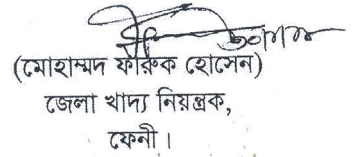 (মোহাম্মদ ফারুক হোসেন)
জেলা খাদ্য নিয়ন্ত্রক,
ফেনী।